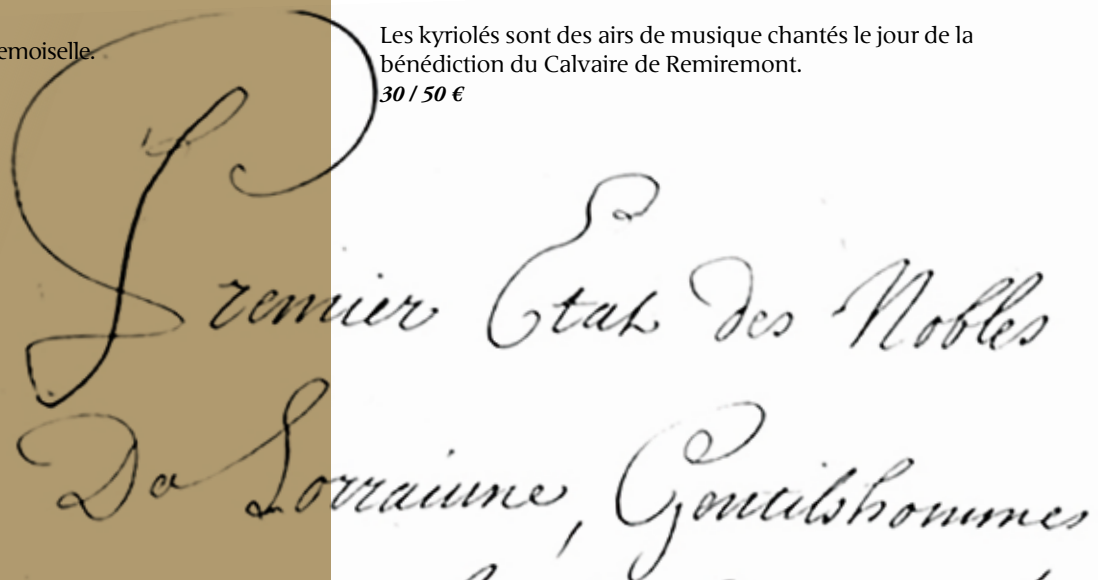 emoiselle.
Les kyriolés sont des airs de musique chantés le jour de la
bénédiction du Calvaire de Remiremont.
30 / 50 €
Premier Etat des Nobles
De Lorrainne, Gentilshommes